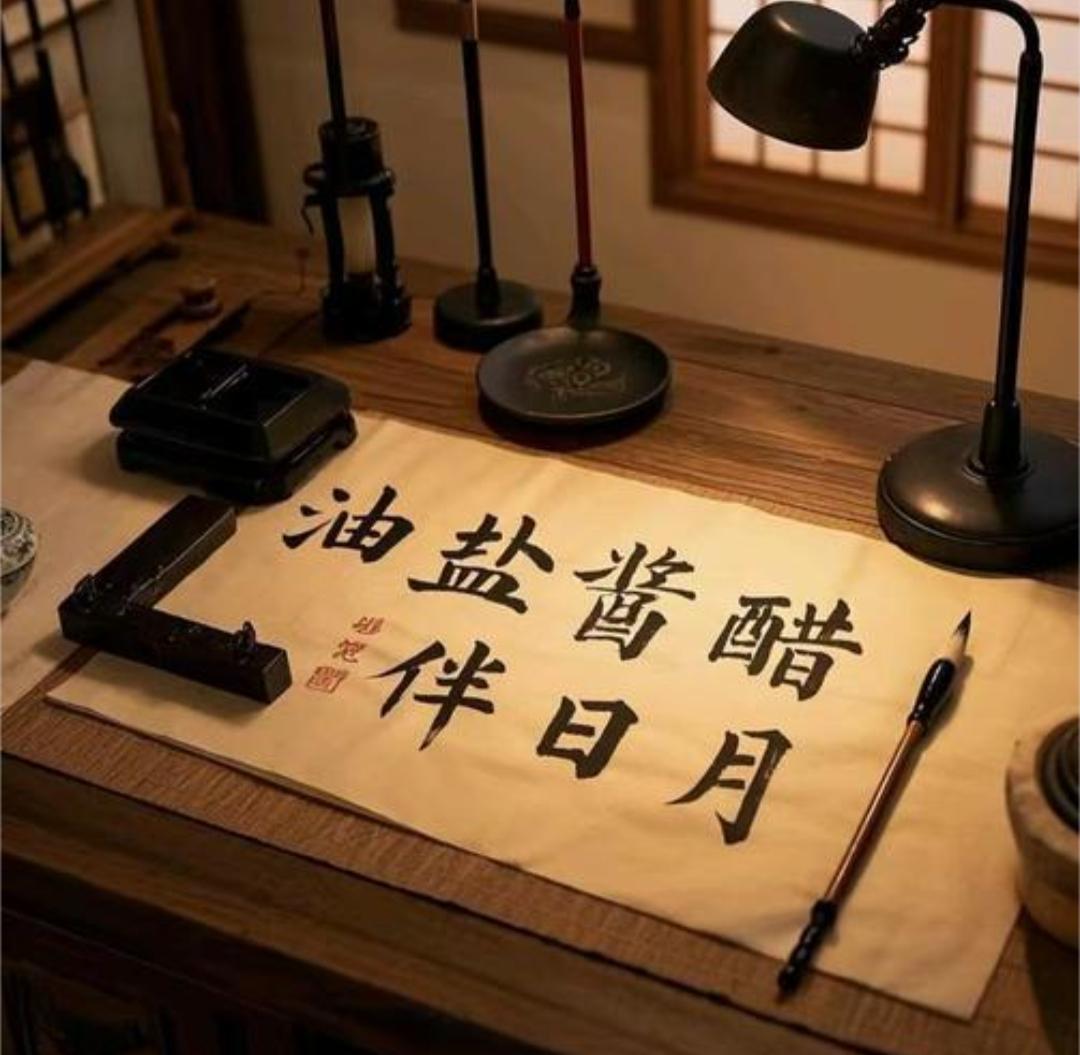 油盐酱醋
伴日月